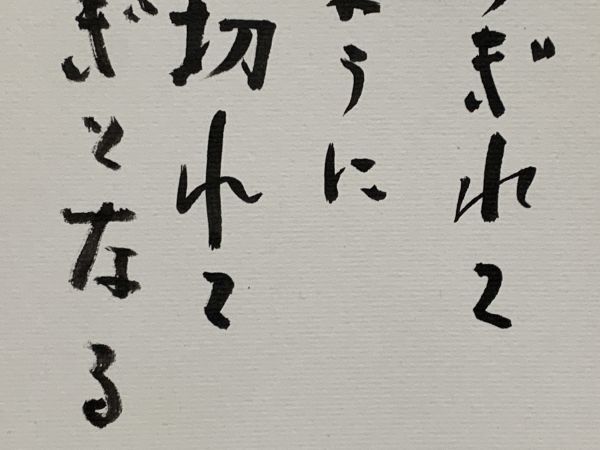 ぎれて
うに
切れて
ぎとなる